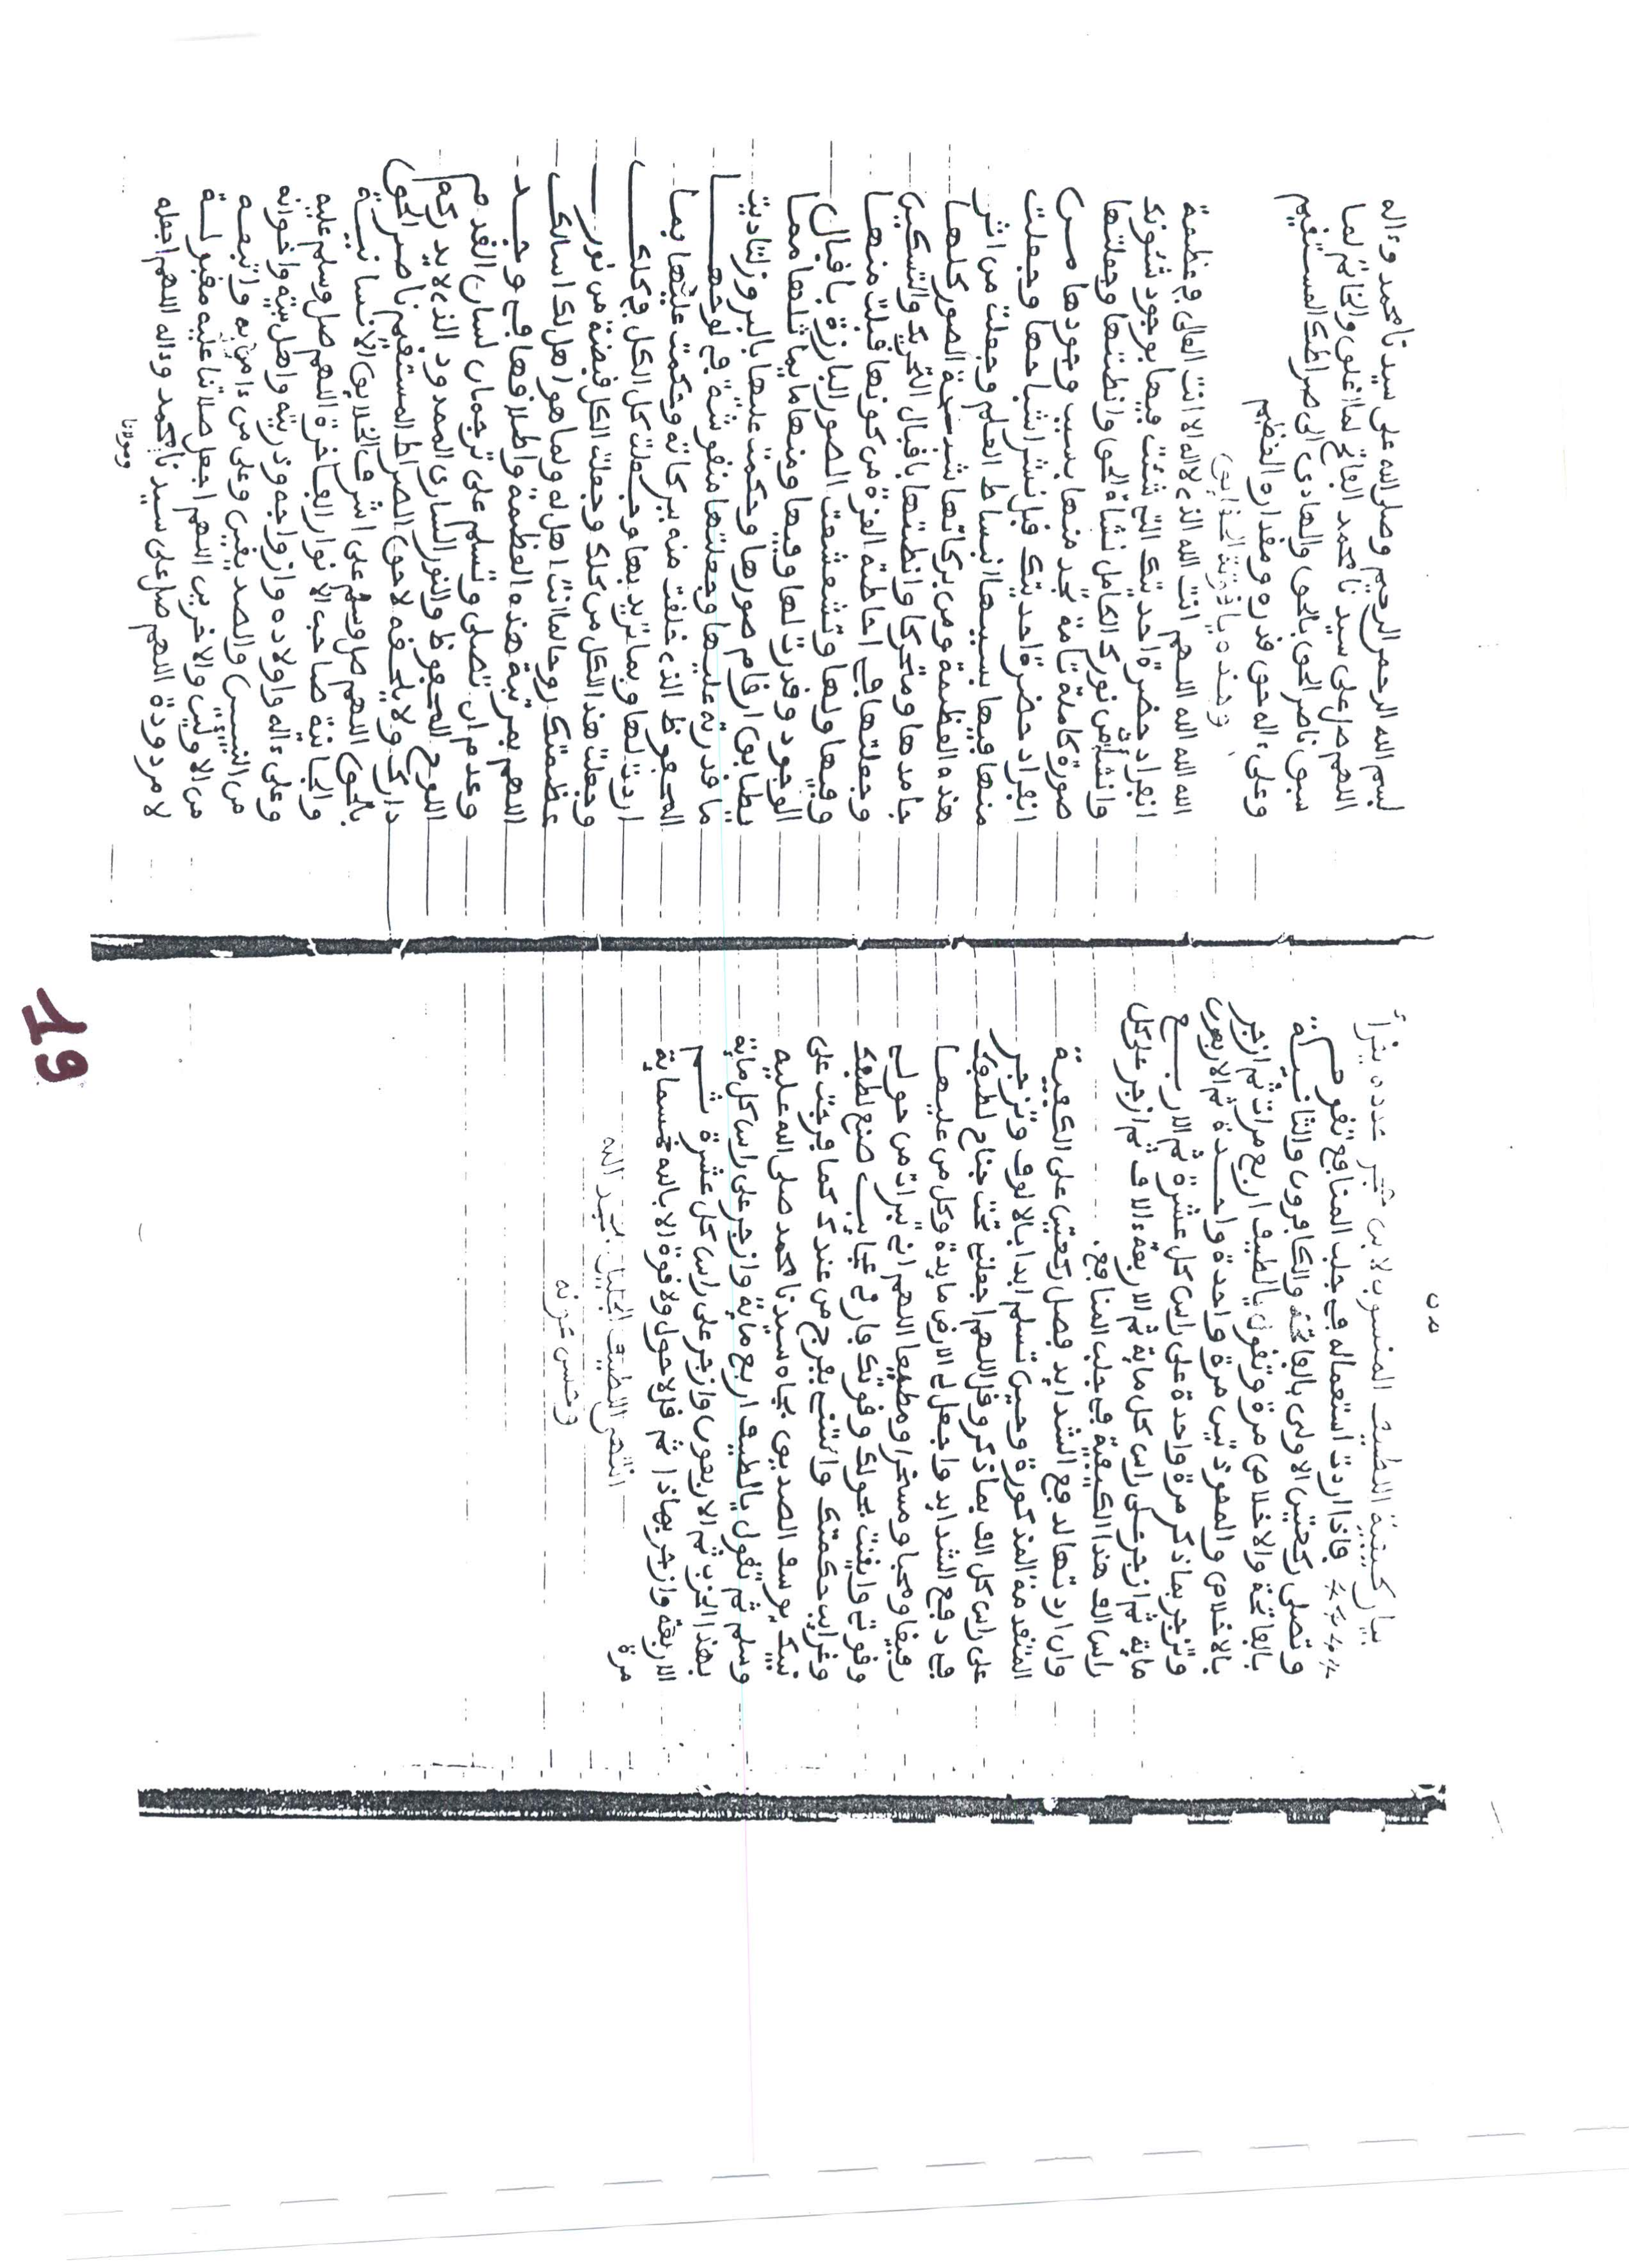 يبارك كيفية اللطيف المنسوب لابن حجر عدده يقرأ
فاذا اردت استعماله في جلب المنافع تقوم
وتصلى ركعتين الاولى بالفاتحة والكافرون والثانية
بالفاتحة والاخلاص مرة وتقول يالطيف اربع مرات ثم ازجر
بالاخلاص والمعوذتين مرة واحدة واحدة ثم الاربعون
وتزجر بما ذكر مرة واحدة على راس كل عشرة ثم الاربع
ماية ثم ازجر على راس كل ماية ثم الاربعة ءالاف ثم ازجر على كل
راس الف هذا الكيفية في جلب المنافع
وان اردتها لدفع الشدايد فصل ركعتين على الكيفية
المتقدمة المذكورة وحين تسلم ابدا بالالوف وتزجر
على راس كل الف بما ذكر وقل اللهم اجعلنى تحت جناح لطفك
في دفع الشدايد واجعل لى الارض مايدة وكل من عليها
رفيقا ومحبا ومسخرا ومطيعا اللهم انى تبرات من حولى
وقوتى وايقنت بحولك وقوتك فارنى عجايب صنع لطفك
وغرايب حكمتك وائتنى بفرج من عندك كما فرجت على
نبيك يوسف الصديق بجاه سيدنا محمد صلى الله عليه
وسلم ثم تقول يالطيف اربع ماية وازجر على راس كل ماية
بهذا الحزب ثم الاربعون وازجر على راس كل عشرة ثم
الاربعة وازجر بهاذا ثم قل لا حول ولا قوة الا بالله خمسماية
مرة
انتهى اللطيف الجليل بحمد الله
وحسن عونه
بسم الله الرحمن الرحيم وصلى الله على سيدنا محمد وءاله
اللهم صل على سيدنا محمد الفاتح لما اغلق والخاتم لما
سبق ناصر الحق بالحق والهادى الى صراطك المستقيم
وعلى ءاله حق قدره ومقداره العظيم
وهذه ياقوتة الحقايق
الله الله الله اللهم انت الله الذى لا اله الا انت العالى في عظمة
انفراد حضرة احديتك التى شئت فيها بوجود شئونك
وانشات من نورك الكامل نشاة الحق وانطتها وجعلتها
صورة كاملة تامة تجد منها بسبب وجودها من
انفراد حضرة احديتك قبل نشر اشباحها وجعلت
منها فيها بسببها انبساط العلم وجعلت من اثر
هذه العظمة ومن بركاتها شبحة الصور كلها
جامدها ومتحركها وانطتها باقبال التحريك والتسكين
وجعلتها في احاطة العزة من كونها قبلت منها
وفيها ولها وتشعشعت الصور البارزة باقبال
الوجود وقدرت لها وفيها ومنها ما يماثلها مما
يطابق ارقام صورها وحكمت عليها بالبروز لتادية
ما قدرته عليها وجعلتها منقوشة في لوحها
المحفوظ الذى خلقت منه ببركاته وحكمت عليها بما
اردت لها وبما تريد بها وجعلت كل الكل في كلك
وجعلت هذا الكل من كلك وجعلت الكل قبضة من نور
عظمتك روحا لما انت اهل له ولما هو اهل لك اسالك
اللهم بمرتبة هذه العظمة واطلاقها في وجد
وعدم ان تصلى وتسلم على ترجمان لسان القدم
اللوح المحفوظ والنور السارى الممدود الذى لا يدركه
دارك ولا يلحقه لاحق الصراط المستقيم ناصر الحق
بالحق اللهم صل وسلم على اشرف الخلايق الانسانية
والجانية صاحب الانوار الفاخرة اللهم صل وسلم عليه
وعلى ءاله واولاده وازواجه وذريته واهل بيته واخوانه
من النبيين والصديقين وعلى من ءامن به واتبعه
من الاولين والاخرين اللهم اجعل صلاتنا عليه مقبولة
لا مردودة اللهم صل على سيدنا محمد وءاله اللهم اجعله
ومولانا
19